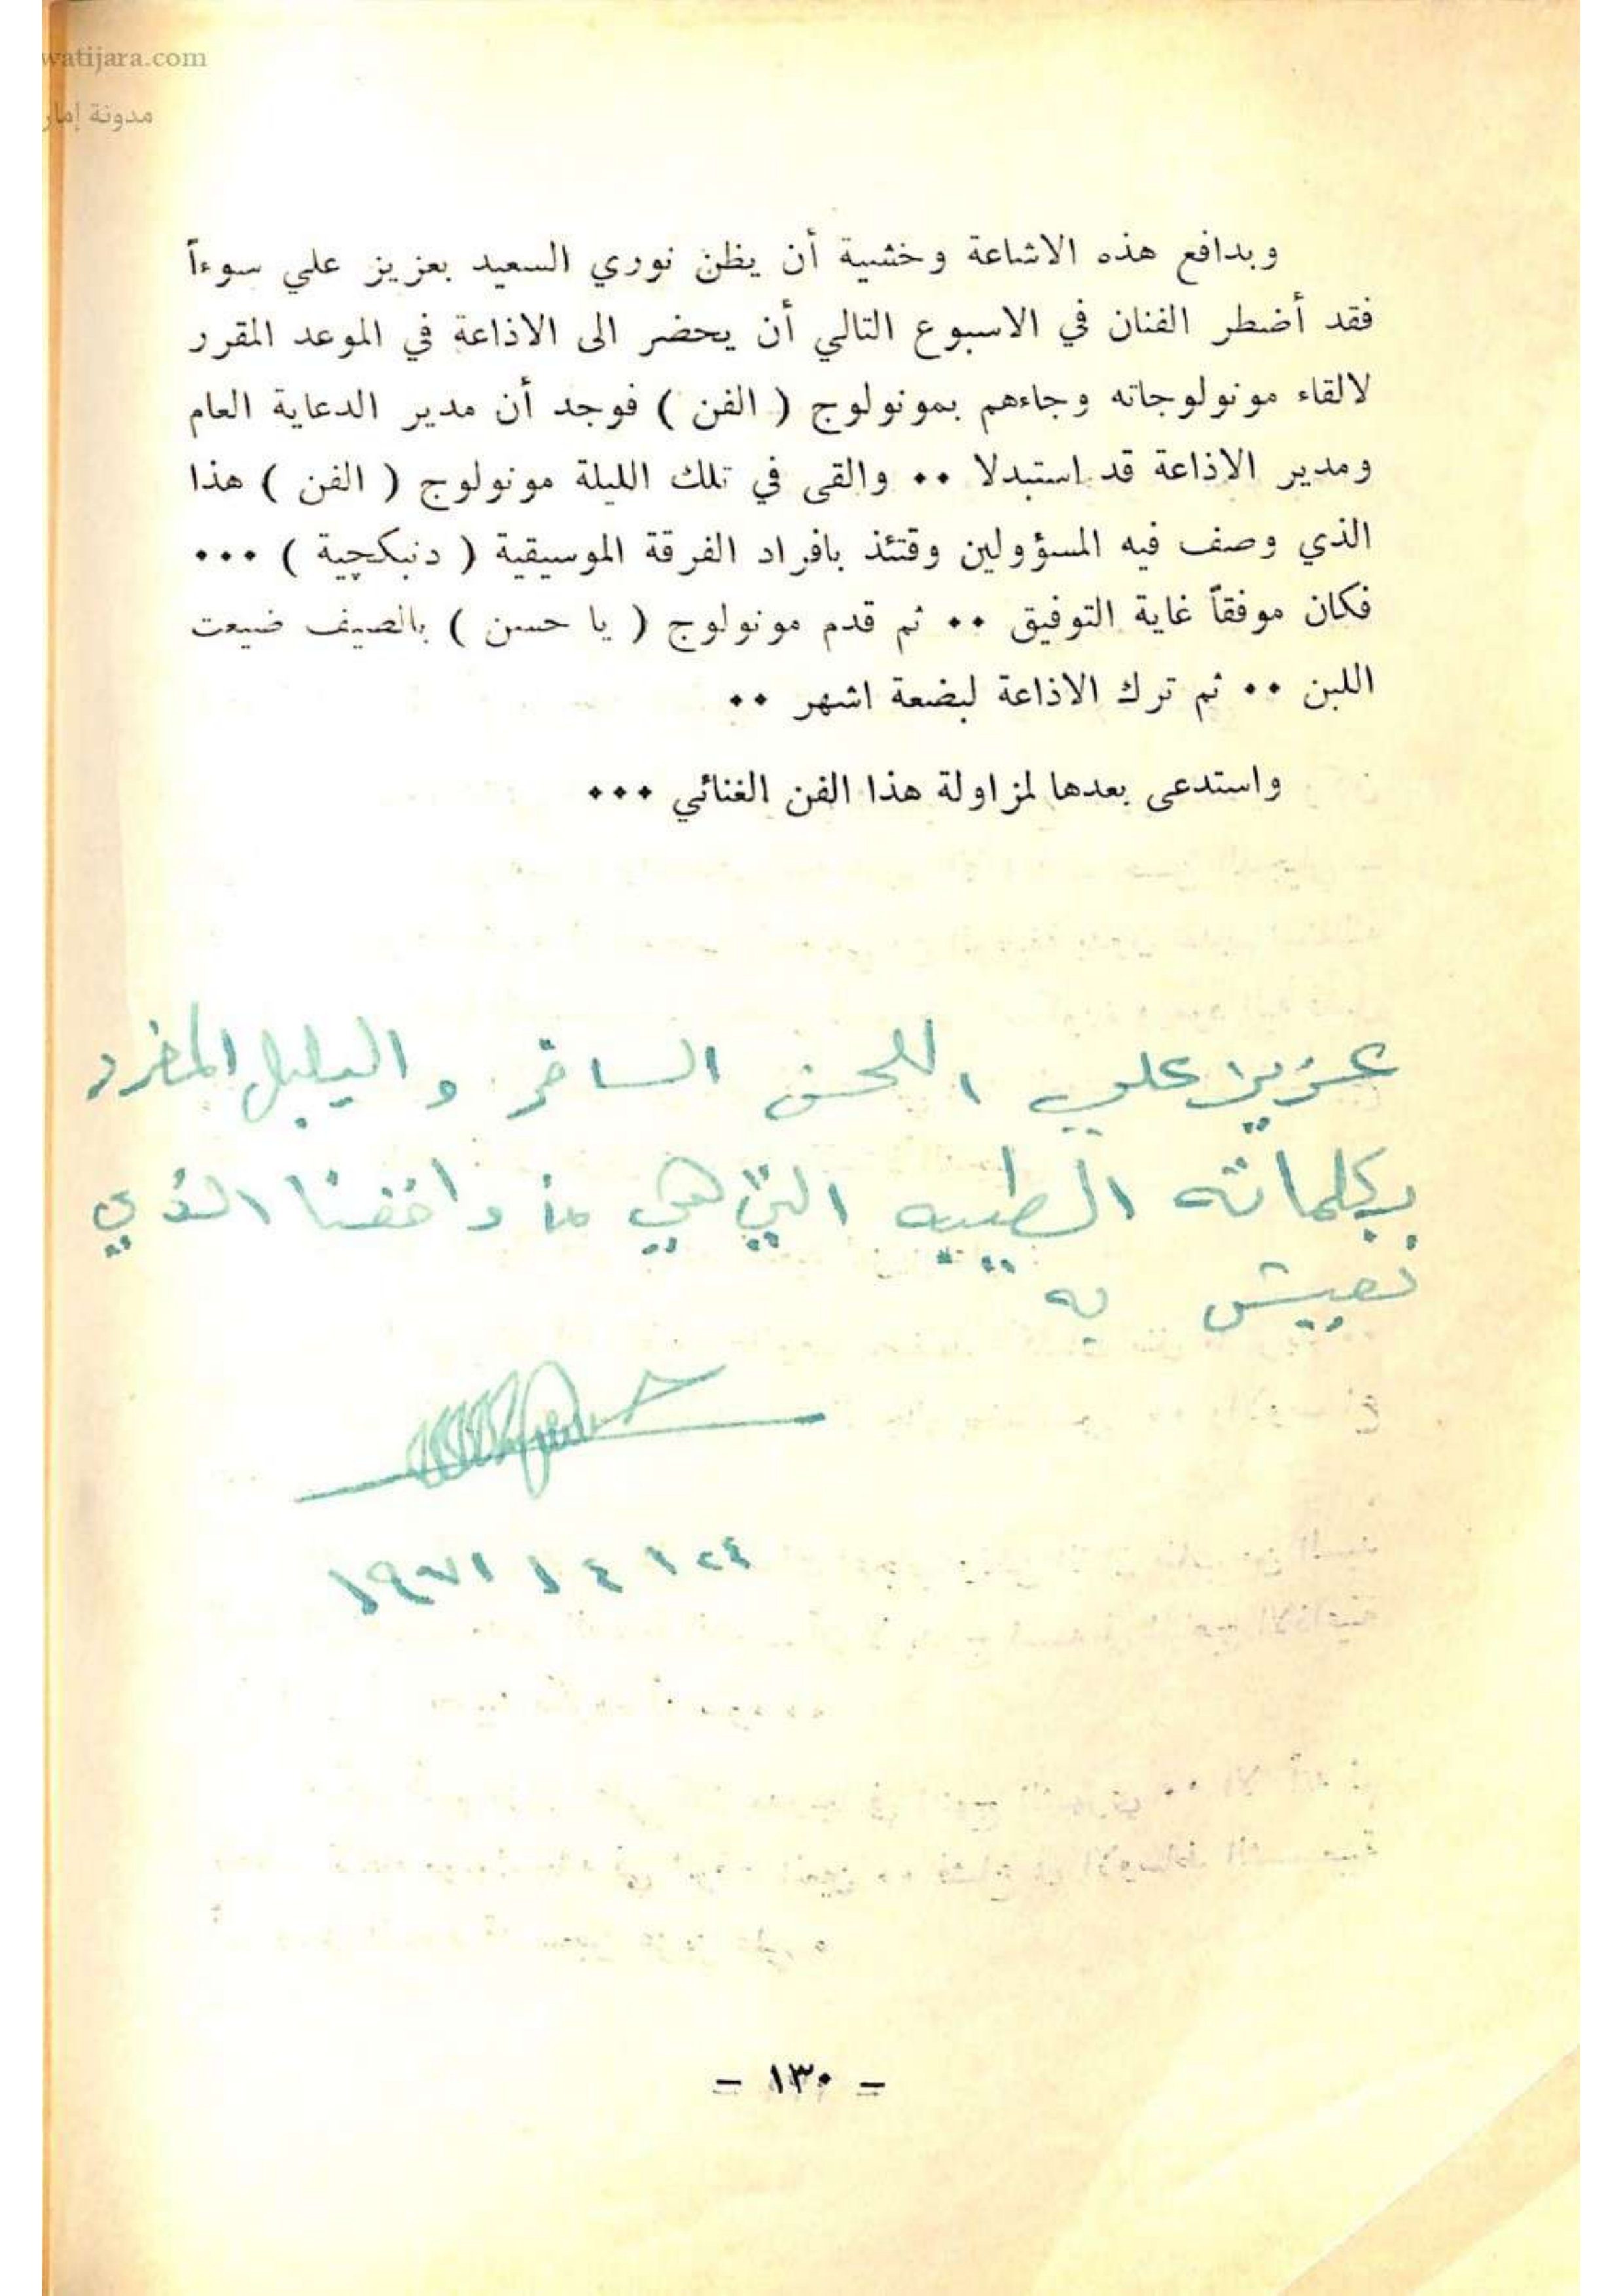 watijara.com
مدونة إمار
وبدافع هذه الاشاعة وخشية أن يظن نوري السعيد بعزيز علي سوءاً
فقد أضطر الفنان في الاسبوع التالي أن يحضر الى الاذاعة في الموعد المقرر
لالقاء مونولوجاته وجاءهم بمونولوج ( الفن ) فوجد أن مدير الدعاية العام
ومدير الاذاعة قد استبدلا ٠٠ والقى في تلك الليلة مونولوج ( الفن ) هذا
الذي وصف فيه المسؤولين وقتئذ بافراد الفرقة الموسيقية ( دنبكچية ) ٠٠٠
فكان موفقاً غاية التوفيق ٠٠ ثم قدم مونولوج ( يا حسن ) بالصيف ضيعت
اللبن ٠٠ ثم ترك الاذاعة لبضعة اشهر ٠٠
واستدعى بعدها لمزاولة هذا الفن الغنائي ٠٠٠
عزيز علي اللحن الساخر والبلبل المغرد
بكلماته الطيبه التي هي من واقعنا الذي
نعيش به
٢٤ / ٤ / ١٩٧١
- ١٣٠ -